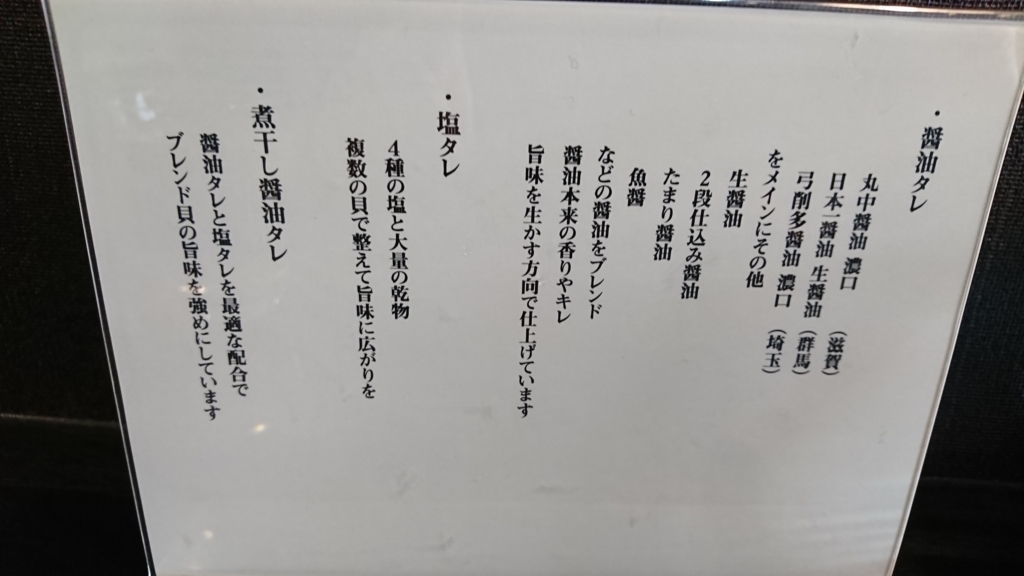 ・醤油タレ
丸中醤油 濃口 (滋賀)
日本一醤油 生醤油 (群馬)
弓削多醤油 濃口 (埼玉)
をメインにその他
生醤油
2段仕込み醤油
たまり醤油
魚醤
などの醤油をブレンド
醤油本来の香りやキレ
旨味を生かす方向で仕上げています
・塩タレ
4種の塩と大量の乾物
複数の貝で整えて旨味に広がりを
・煮干し醤油タレ
醤油タレと塩タレを最適な配合で
ブレンド貝の旨味を強めにしています